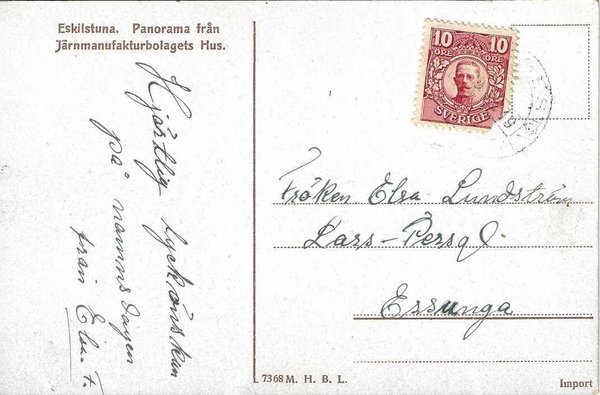 Eskilstuna. Panorama från
Järnmanufakturbolagets Hus.
Hjärtlig lyckönskan
på namnsdagen
från
10 10
ÖRE ÖRE
SVERIGE
Fröken Elsa Lundström
Lars-Persg.
Essunga
L 7368 M. H. B. L.
Import